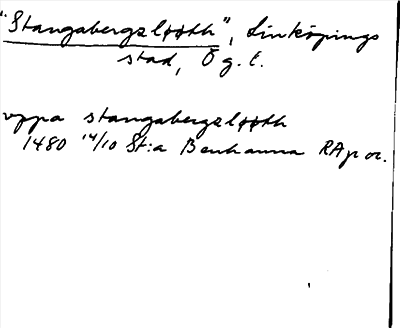 "Stangabergzløøth", Linköpings
stad, Ög.l.
vppa stangabergzløøth
1480 14/10 St:a Benhamna RAp or.